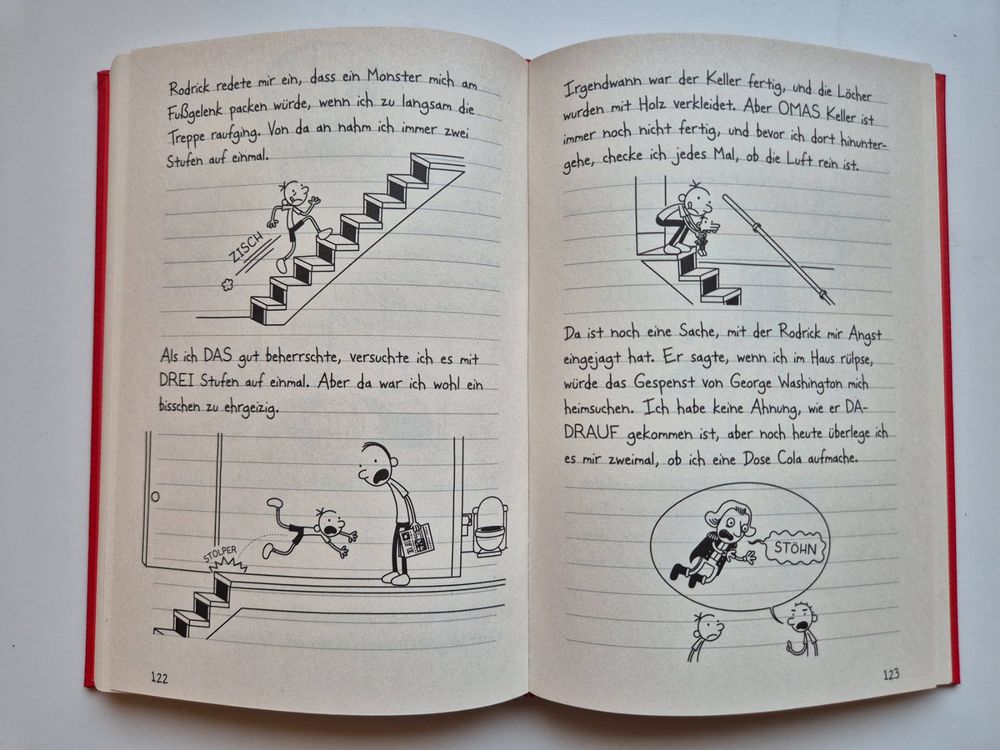 Rodrick redete mir ein, dass ein Monster mich am
Fußgelenk packen würde, wenn ich zu langsam die
Treppe raufging. Von da an nahm ich immer zwei
Stufen auf einmal.
ZISCH
Als ich DAS gut beherrschte, versuchte ich es mit
DREI Stufen auf einmal. Aber da war ich wohl ein
bisschen zu ehrgeizig.
STOLPER
122
Irgendwann war der Keller fertig, und die Löcher
wurden mit Holz verkleidet. Aber OMAS Keller ist
immer noch nicht fertig, und bevor ich dort hinunter-
gehe, checke ich jedes Mal, ob die Luft rein ist.
Da ist noch eine Sache, mit der Rodrick mir Angst
eingejagt hat. Er sagte, wenn ich im Haus rülpse,
würde das Gespenst von George Washington mich
heimsuchen. Ich habe keine Ahnung, wie er DA-
DRAUF gekommen ist, aber noch heute überlege ich
es mir zweimal, ob ich eine Dose Cola aufmache.
STÖHN
123